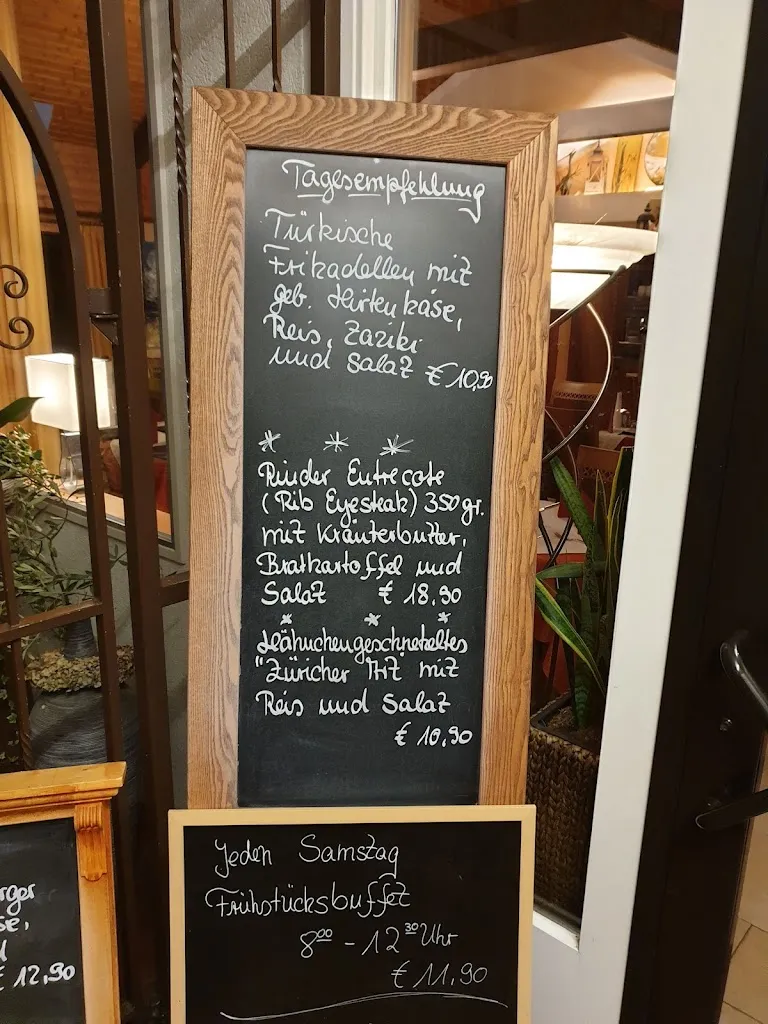 Tagesempfehlung
Türkische
Frikadellen mit
geb. Hirtenkäse,
Reis, Zaziki
und Salat € 10,90
* * *
Rinder Entrecote
(Rib Eyesteak) 350 gr.
mit Kräuterbutter,
Bratkartoffel und
Salat € 18,90
* * *
Hähnchengeschnetzeltes
"Züricher Art" mit
Reis und Salat
€ 10,90
Jeden Samstag
Frühstücksbuffet
8⁰⁰ - 12³⁰ Uhr
€ 11,90
rger
se,
€ 12,90